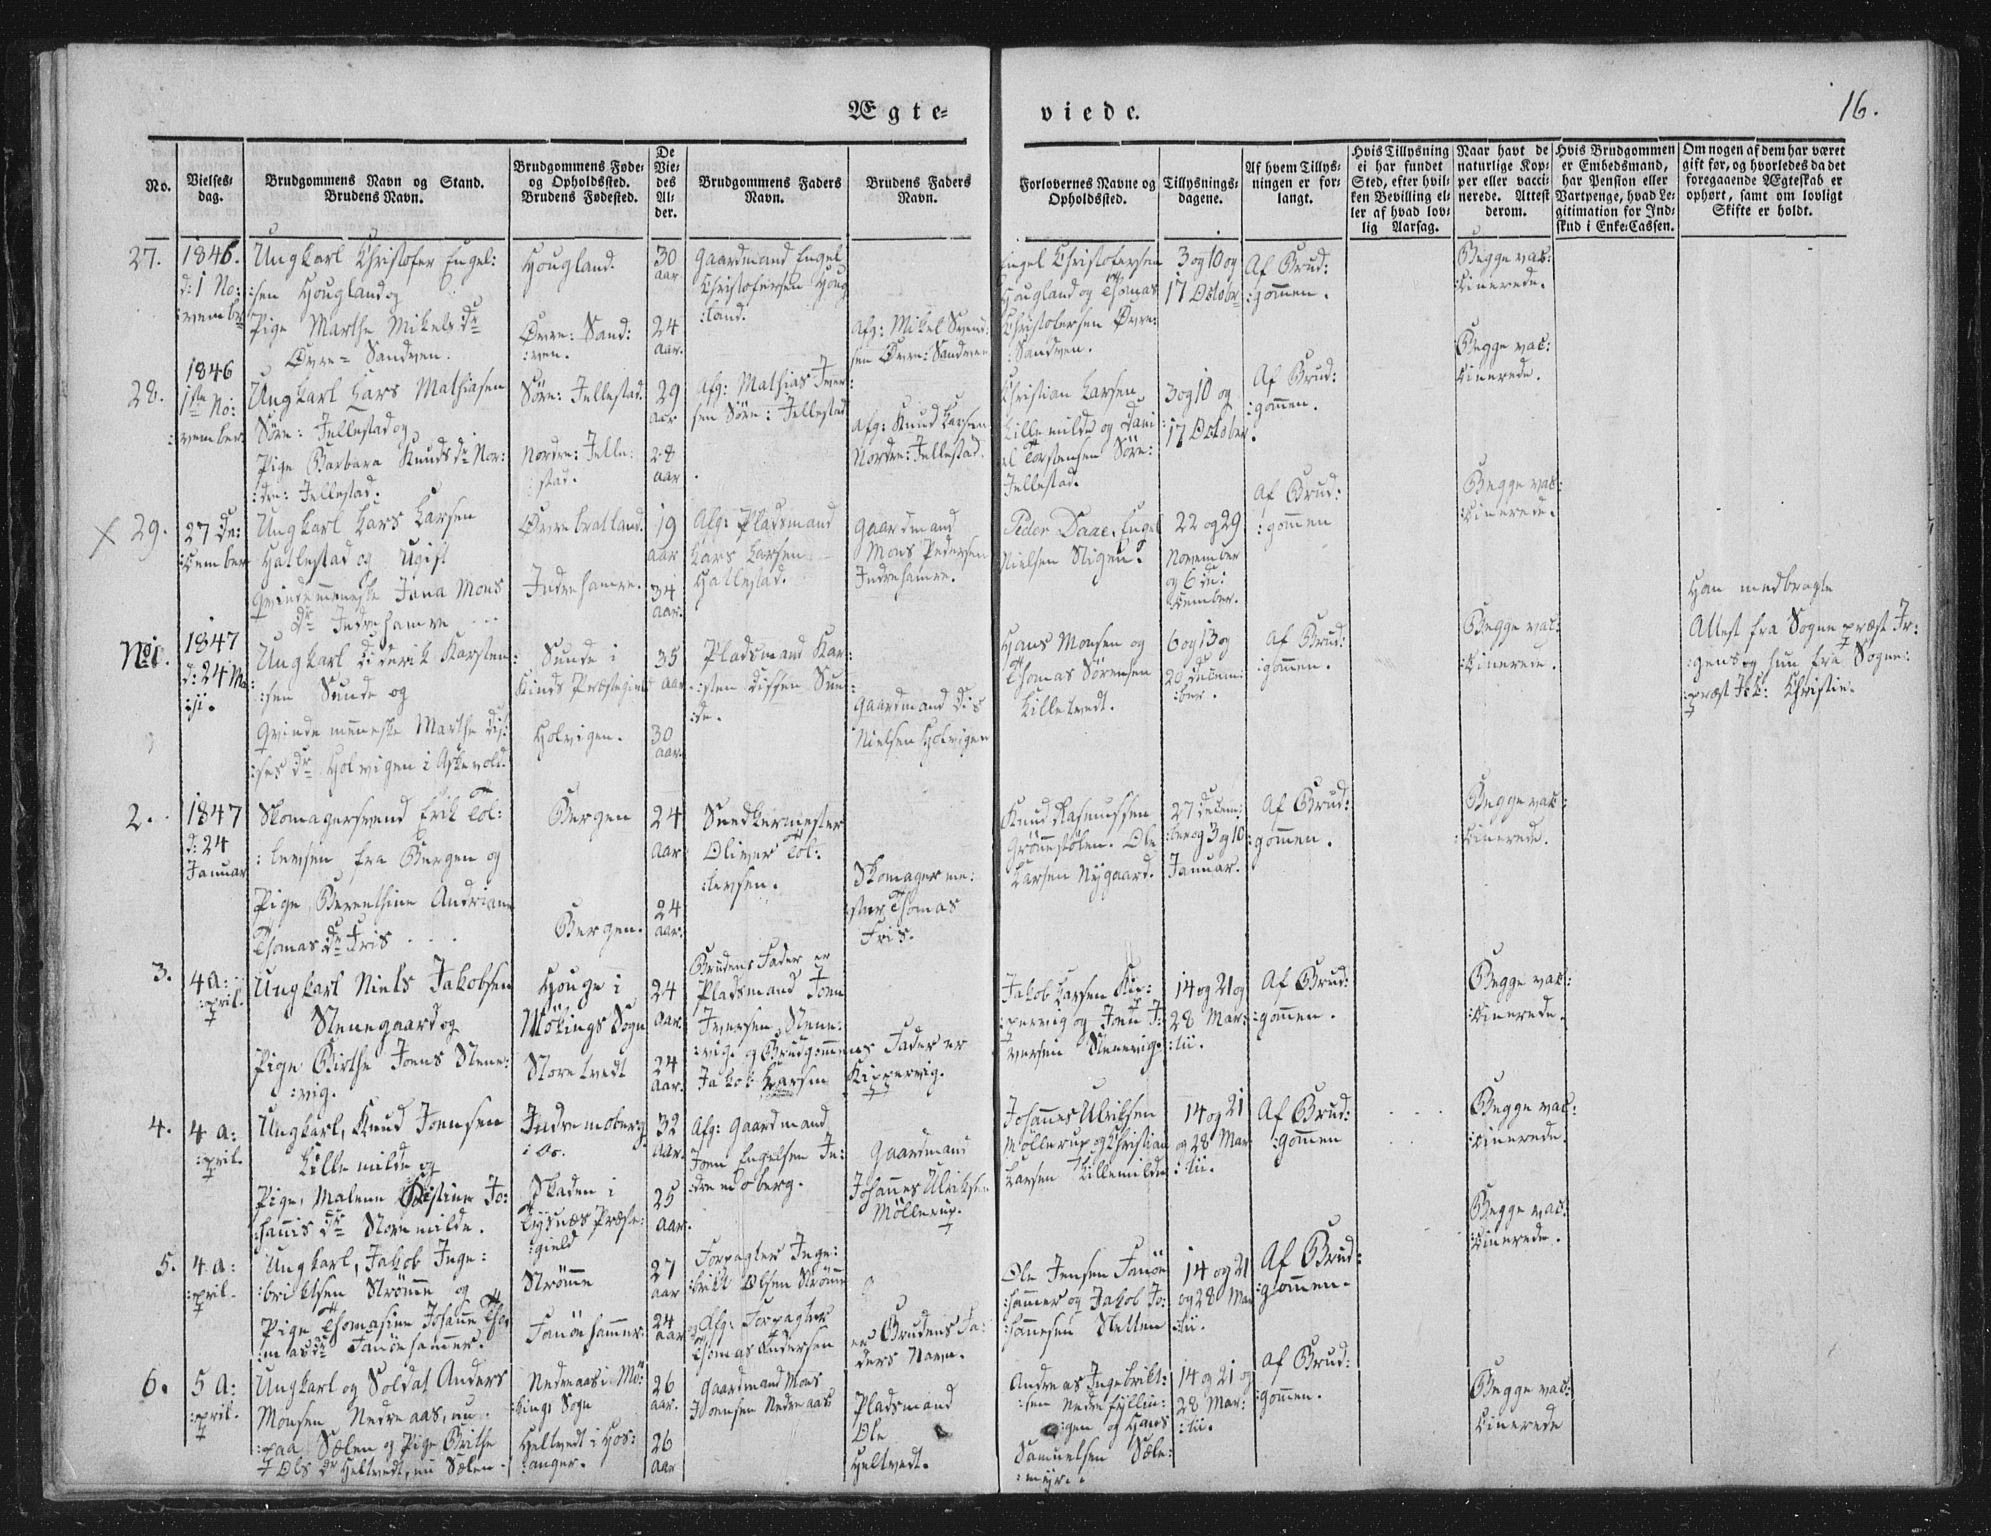 Ægte-
viede.
16.
No.
Vielses-
dag.
Brudgommens Navn og Stand.
Brudens Navn.
Brudgommens Føde-
og Opholdssted.
Brudens Fødested.
De
Vie-
des
Al-
der.
Brudgommens Faders
Navn.
Brudens Faders
Navn.
Forlovernes Navne og
Opholdssted.
Tillysnings-
dagene.
Af hvem Tillys-
ningen er for-
langt.
Hvis Tillysning
ei har fundet
Sted, efter hvil-
ken Bevilling el-
ler af hvad lov-
lig Aarsag.
Naar havt de
naturlige Kop-
per eller vacci-
nerede. Attest
derom.
Hvis Brudgommen
er Embedsmand,
har Pension eller
Vartpenge, hvad Le-
gitimation for Ind-
skud i Enke-Cassen.
Om nogen af dem har været
gift før, og hvorledes da det
foregaaende Ægteskab er
ophørt, samt om lovligt
Skifte er holdt.
27.
1846.
d: 1 No:
:vembr
Ungkarl Christofer Engel:
:sen Hougland og
Pige Marthe Mikels dr
Øvre= Sandven.
Hougland.
Øvre: Sand:
:ven.
30
aar
24
aar.
Gaardmand Engel
Christofersen Houg
:land.
Afg: Mikel Svend:
sen Øvre: Sandven
Engel Christofersen
Hougland og Thomas
Christofersen Øvre:
Sandven.
3 og 10 og
17 Octobr
Af Brud:
:gommen.
Begge vac:
:cinerede.
28.
1846
1ste No:
:vember
Ungkarl Lars Mathiasen
Søre: Jellestad og
Pige Barbara Knuds dr Nor:
:dre: Jellestad.
Søre: Jellestad.
Nordre: Jelle:
:stad.
29
aar
28
aar
Afg: Mathias Iver
sen Søre: Jellestad
Afg: Knud Larsen
Nordre: Jellestad.
Christian Larsen
Lillemilde og Dani
el Torstensen Søre:
Jellestad.
3 og 10 og
17 October.
Af Brud:
:gommen.
Begge vac:
cinerede.
x 29.
27 De:
:cember
Ungkarl Lars Larsen
Hallestad og ugift
Qvindemenneske Jana Mons
dr Indrehamre
Øvrebratland.
Indrehamre.
19
aar
34
aar.
Afg: Pladsmand
Lars Larsen
Hallestad.
Gaardmand
Mons Pedersen
Indrehamre.
Peder Daae. Engel
Nielsen Stigen.
22 og 29
November
og 6 De:
cember.
Af Brud:
:gommen
Begge vac:
:cinerede.
No 1.
1847
d: 24 Ma
:ji.
Ungkarl Diderik Karsten:
:sen Sunde og
Qvindemenneske Marthe Dis:
:ses dr Holvigen i Askevold.
Sunde i
Kinds Præstegield
Holvigen.
35
aar.
30
aar.
Pladsmand Kar:
:sten Dissen Sun:
:de.
Gaardmand Dis
Nielsen Holvigen
Hans Monsen og
Thomas Sørensen
Lilletvedt.
6 og 13 og
20 Decem:
:ber.
Af Brud:
:gommen.
Begge vac:
:cinerede.
Han medbragte
Attest fra Sognepræst Ir:
:gens og hun fra Sogne:
:præst Christie.
2.
1847
d: 24
Januar
Skomagersvend Erik Tol:
:levsen fra Bergen og
Pige Berenthine Andriane
Thomas dr Friis
Bergen
Bergen.
24
aar
24
aar.
Snedkermester
Oliver Tol:
:levsen.
Skomagerme:
:ster Thomas
Friis.
Knud Rasmussen
Grønnestølen. Ole
Larsen Nygaard.
27 Decem:
:ber og 3 og 10
Januar.
Af Brud:
gommen.
Begge vac:
:cinerede.
3.
4 A:
:pril.
Ungkarl Niels Jakobsen
Stenegaard og
Pige Birthe Joens Stene:
:vig.
Houge i
Møkings Sogn
Storetvedt
24
aar.
24
aar.
Brudens Fader er
Pladsmand Joen
Iversen Stene:
:vig. og Brudgommens Fader er
Jakob Larsen Kippervig.
Jakob Larsen Kip:
:pervig og Joen I:
versen Stenevig.
14 og 21 og
28 Mar:
:tii.
Af Brud:
:gommen.
Begge vac:
:cinerede.
4.
4 A:
:pril.
Ungkarl, Knud Joensen
Lillemilde og
Pige, Malene Cristine Jo:
:hannis dr Storemilde.
Indremoberg
i Os.
Skaden i
Lysnæs Præste:
:gield
32
aar.
25
aar.
Afg: Gaardmand
Joen Engelsen In:
:dremoberg.
Gaardmand
Johannes Ulriksen
Møllerup.
Johannes Ulriksen
Møllerup og Christian
Larsen Lillemilde
14 og 21
og 28 Mar
:tii.
Af Brud:
:gommen
Begge vac:
:cinerede.
5.
4 A:
:pril.
Ungkarl, Jakob Inge:
:briktsen Strømme og
Pige Thomasine Johanne Tho:
:mas dr Fanøehammer.
Strømme
Fanøehammer.
27
aar
24
aar
Forpagter Inge:
:brikt Olsen Strømme
og Afg: Forpagter
Thomas Andersen
er Brudens Fa:
ders Navn.
Ole Jensen Fanøe
:hammer og Jakob Jo:
:hannesen Sletten
14 og 21
og 28 Mar
:tii.
Af Brud:
:gommen.
Begge vac:
:cinerede.
6.
5 A:
:pril.
Ungkarl og Soldat Anders
Monsen Nedreaas, nu
:paa Sælen og Pige Brithe
Ols dr Heltvedt, nu Sælen.
Nedreaas i Mö:
:kings Sogn
Heltvedt i Hos:
:anger.
26
aar.
26
aar
Gaardmand Mons
Joensen Nedreaas
Pladsmand
Ole
Heltvedt.
Andreas Ingebrikt:
:sen Nedrefyllin:
:gen og Hans
Samuelsen Sæle:
:myr.
14 og 21 og
28 Mar:
:tii.
Af Brud:
:gommen.
Begge vac:
cinerede